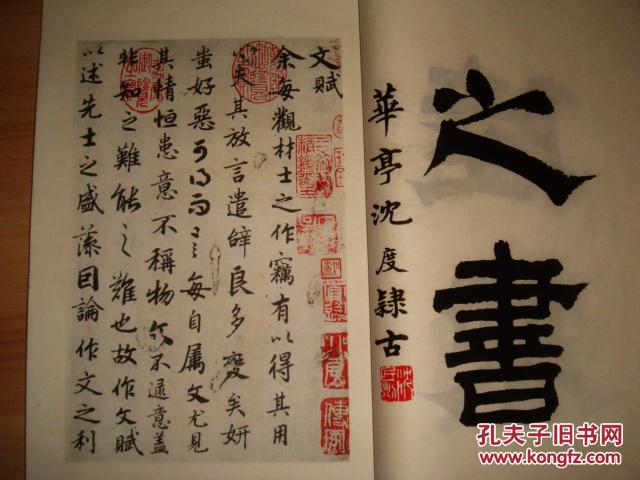 之書
華亭沈度隸古
文賦
余每觀材士之作竊有以得其用
心夫其放言遣辭良多變矣妍
蚩好惡可得而言每自属文尤見
其情恒患意不稱物文不逮意蓋
非知之難能之難也故作文賦
以述先士之盛藻因論作文之利
孔夫子旧书网
www.kongfz.com